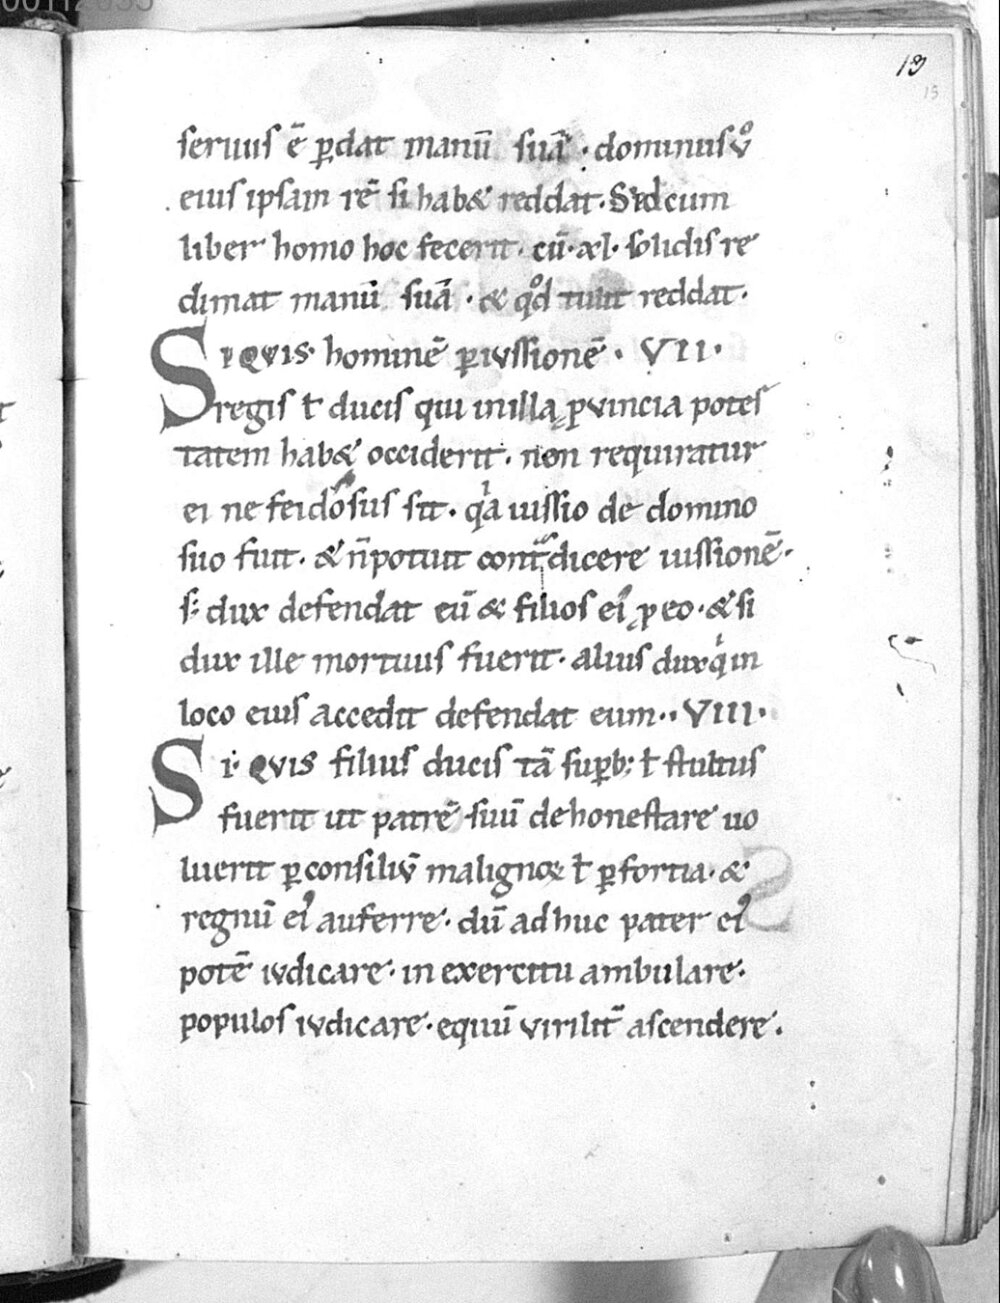 13
13
seruus ē ꝑdat manū suā · dominus v̊
eius ipsam rē si habet reddat · Sed cum
liber homo hoc fecerit · cū · xl · solidis re
dimat manū suā · & qd̊ tulit reddat ·
SI QVIS hominē ꝑ iussionē · VII ·
regis ł ducis qui in illa ꝓvincia potes
tatem habet occiderit · non requiratur
ei ne feidosus sit · qa iussio de domino
suo fuit · & n̄ potuit contdicere iussionē ·
s; dux defendat eū & filios ei' ꝓ eo · & si
dux ille mortuus fuerit · alius dux qi in
loco eius accedit defendat eum · · VIII ·
SI QVIS filius ducis tā suꝑb; ł stultus
fuerit ut patrē suū dehonestare uo
luerit ꝑ consiliū malignoꝝ ł ꝑ fortia · &
regnū ei' auferre · dū adhuc pater ei'
potē iudicare · in exercitu ambulare ·
populos iudicare · equū virilit̄ ascendere ·